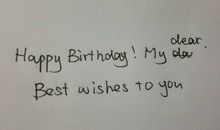 Happy Birthday! My dear.
Best wishes to you